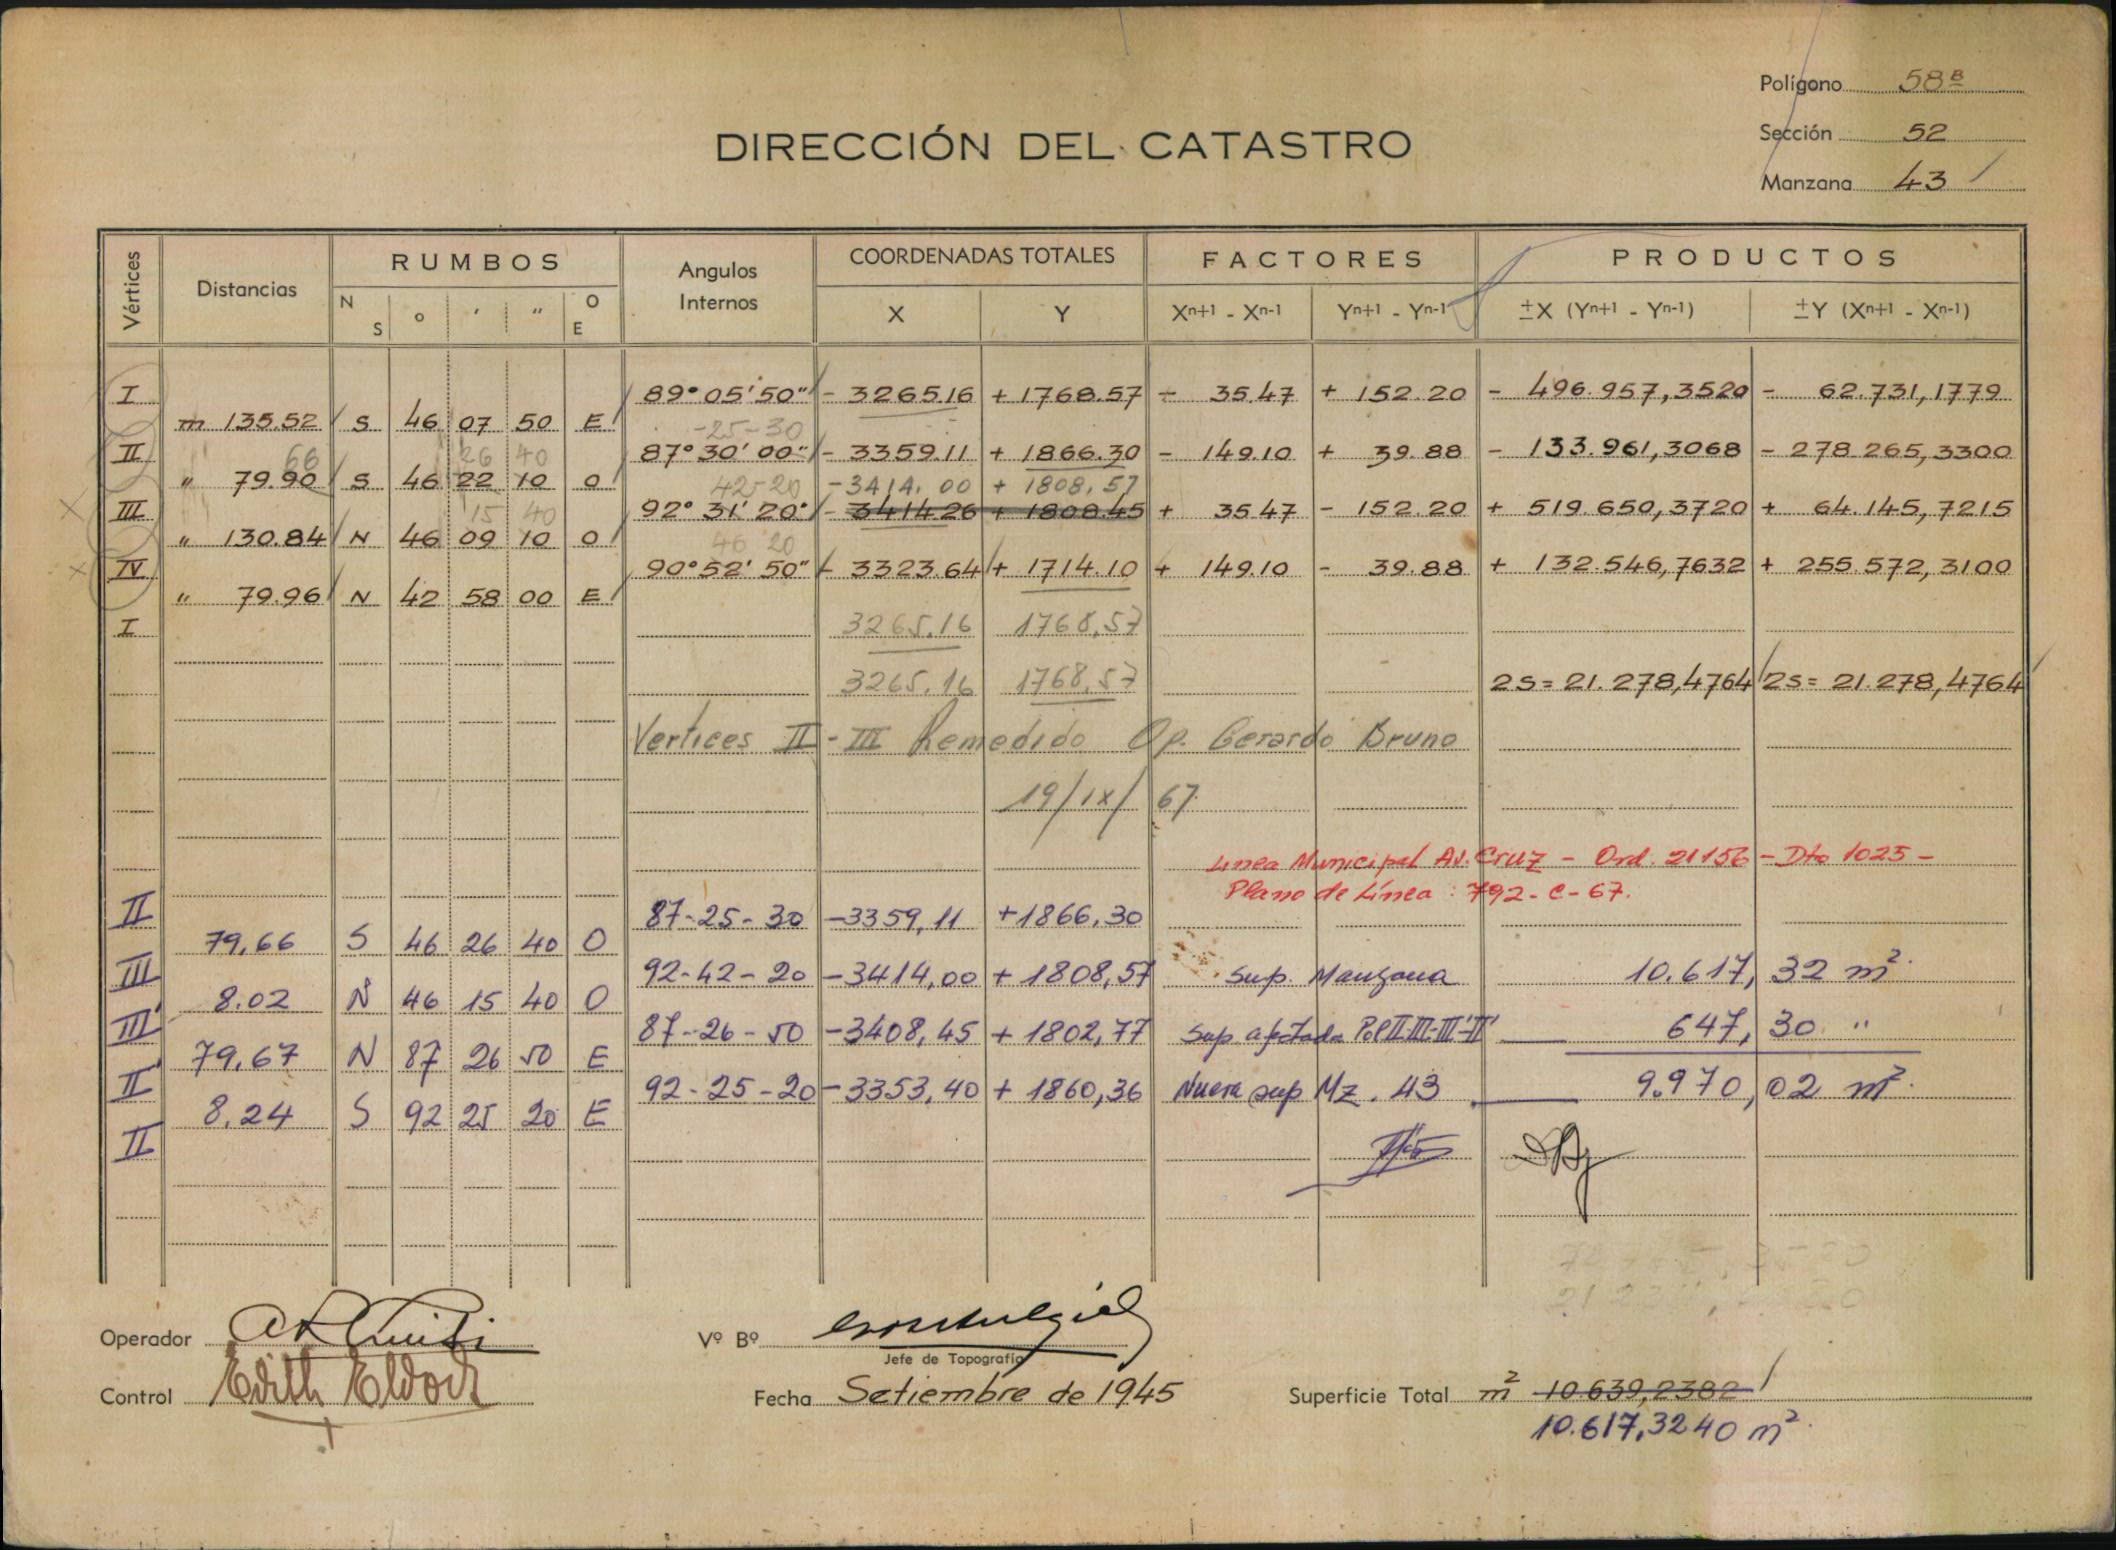 Polígono 58 B
Sección 52
Manzana 43
DIRECCIÓN DEL CATASTRO
Vértices Distancias RUMBOS Angulos Internos COORDENADAS TOTALES FACTORES PRODUCTOS
N S o ' " O E X Y Xn+1 - Xn-1 Yn+1 - Yn-1 ±X (Yn+1 - Yn-1) ±Y (Xn+1 - Xn-1)
I 89° 05' 50" - 3265.16 + 1768.57 - 35.47 + 152.20 - 496.957,3520 - 62.731,1779
m 135.52 S 46 07 50 E
-25-30
II 87° 30' 00" - 3359.11 + 1866.30 - 149.10 + 39.88 - 133.961,3068 - 278.265,3300
66 26 40
" 79.90 S 46 22 10 O
42-20 -3414.00 + 1808.57
III 92° 31' 20" - 3414.26 + 1808.45 + 35.47 - 152.20 + 519.650,3720 + 64.145,7215
15 40
" 130.84 N 46 09 10 O
46 20
IV 90° 52' 50" - 3323.64 + 1714.10 + 149.10 - 39.88 + 132.546,7632 + 255.572,3100
" 79.96 N 42 58 00 E
I 3265.16 1768,57
3265.16 1768,57 2S = 21.278,4764 2S = 21.278,4764
Vertices II - III Remedido Op. Gerardo Bruno
19/IX/67.
Linea Municipal Av. Cruz - Ord. 21156 - Dto 1025 -
Plano de Línea : 792 - C - 67.
II 87-25-30 -3359,11 +1866,30
79,66 S 46 26 40 O
III 92-42-20 -3414,00 + 1808,57 Sup. Manzana 10.617,32 m2.
8.02 N 46 15 40 O
III' 87-26-50 -3408,45 + 1802,77 Sup afectada Pol II-III-III'-II' 647,30 "
79,67 N 87 26 50 E
II' 92-25-20 -3353,40 + 1860,36 Nueva sup Mz. 43 9.970,02 m2.
8.24 S 92 25 20 E
II
Operador
Vº Bº
Jefe de Topografía
Control Edith
Fecha Setiembre de 1945
Superficie Total m2 10.639,2382
10.617,3240 m2.